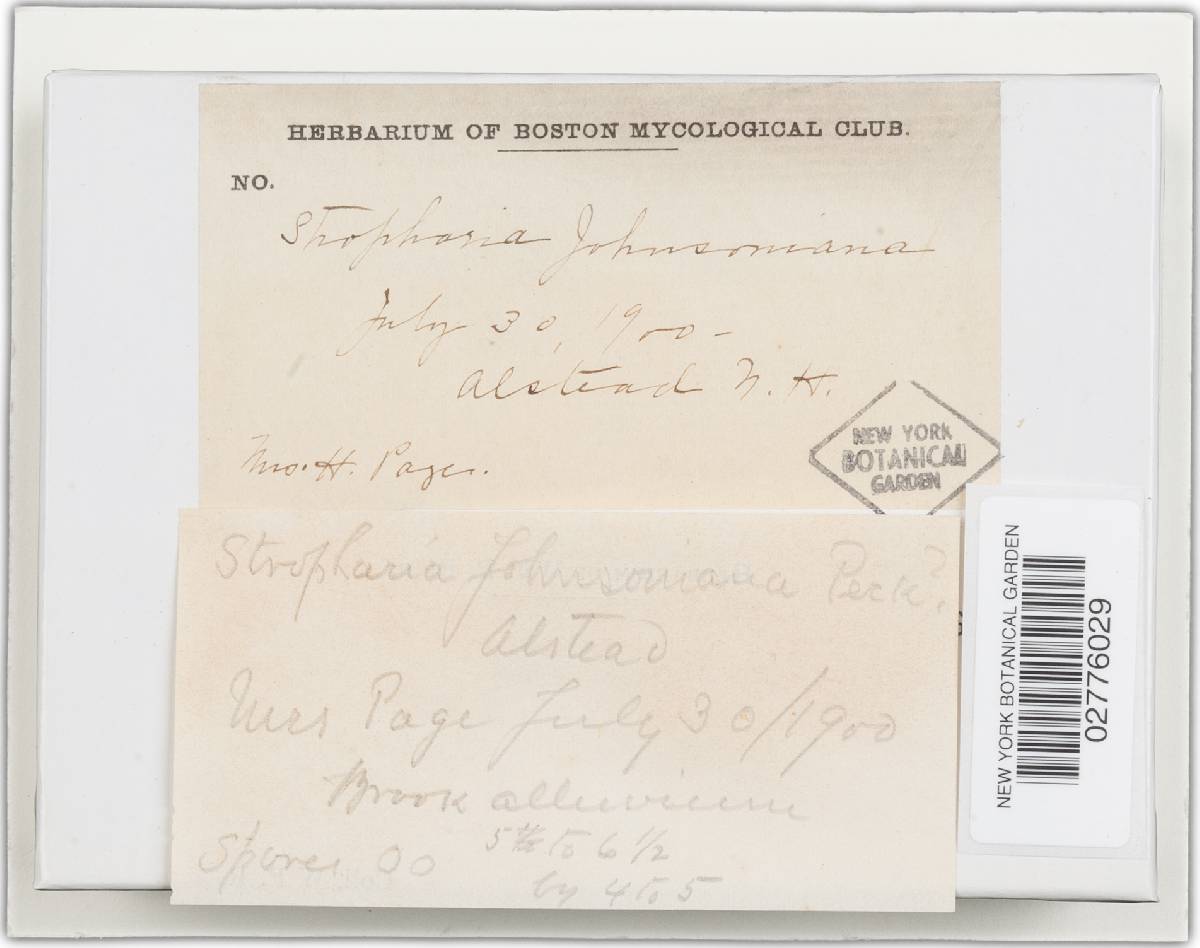 HERBARIUM OF BOSTON MYCOLOGICAL CLUB.
NO.
Stropharia Johnsoniana
July 30, 1900 -
Alstead N. H.
Mrs. H. Page.
NEW YORK
BOTANICAL
GARDEN
Stropharia Johnsoniana Peck?
Alstead
Mrs Page July 30/1900
Brook alluvium
Spores OO 5 to 6 1/2
by 4 to 5
NEW YORK BOTANICAL GARDEN
02776029